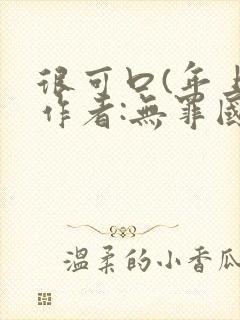 很可口(年上
作者:無罪國
温柔的小香瓜